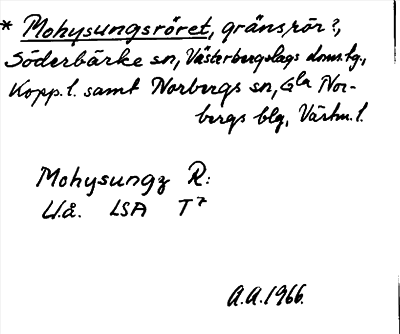 * Mohysungsröret, gränsrör?,
Söderbärke sn, Västerbergslags doms.tg.,
Kopp. l. samt Norbergs sn, Gla Nor-
bergs blg, Västm. l.
Mohysungz R:
U.å. LSA T7
A.A. 1966.